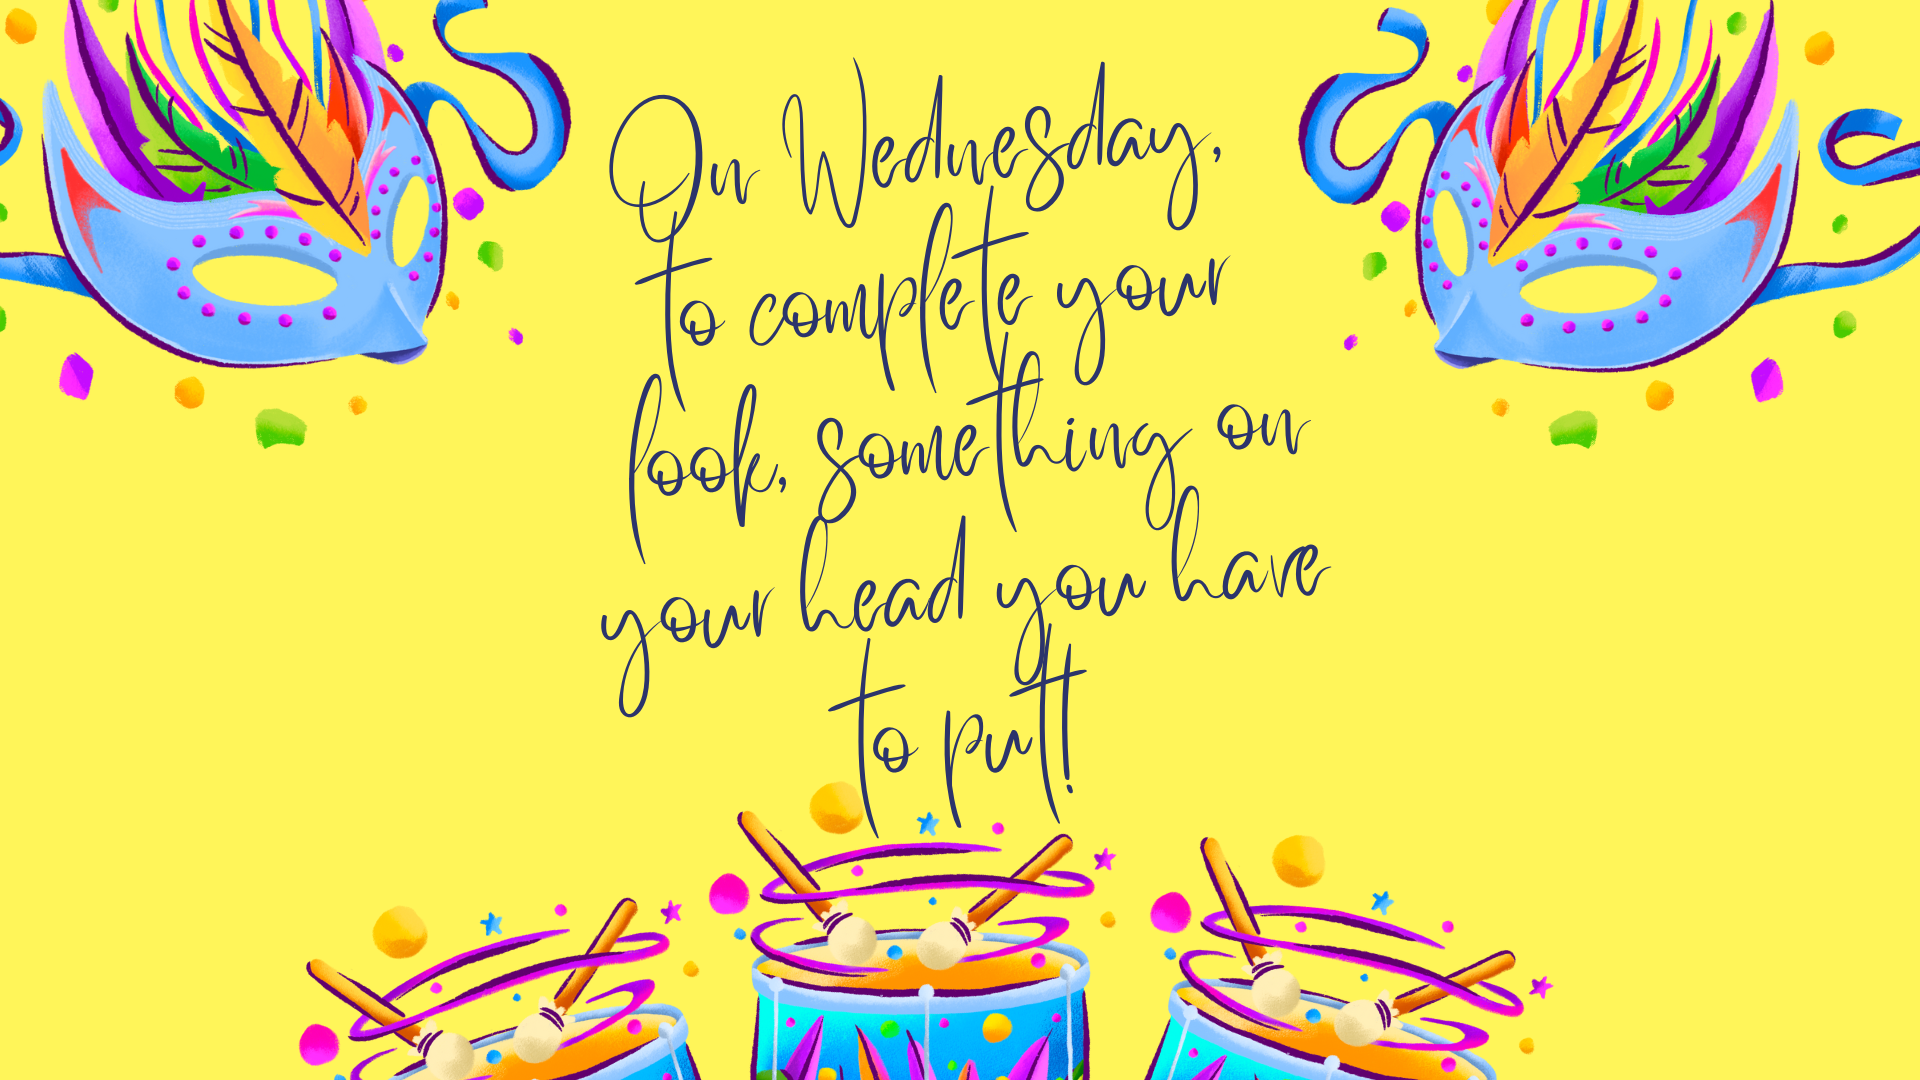 On Wednesday,
to complete your
look, something on
your head you have
to put!